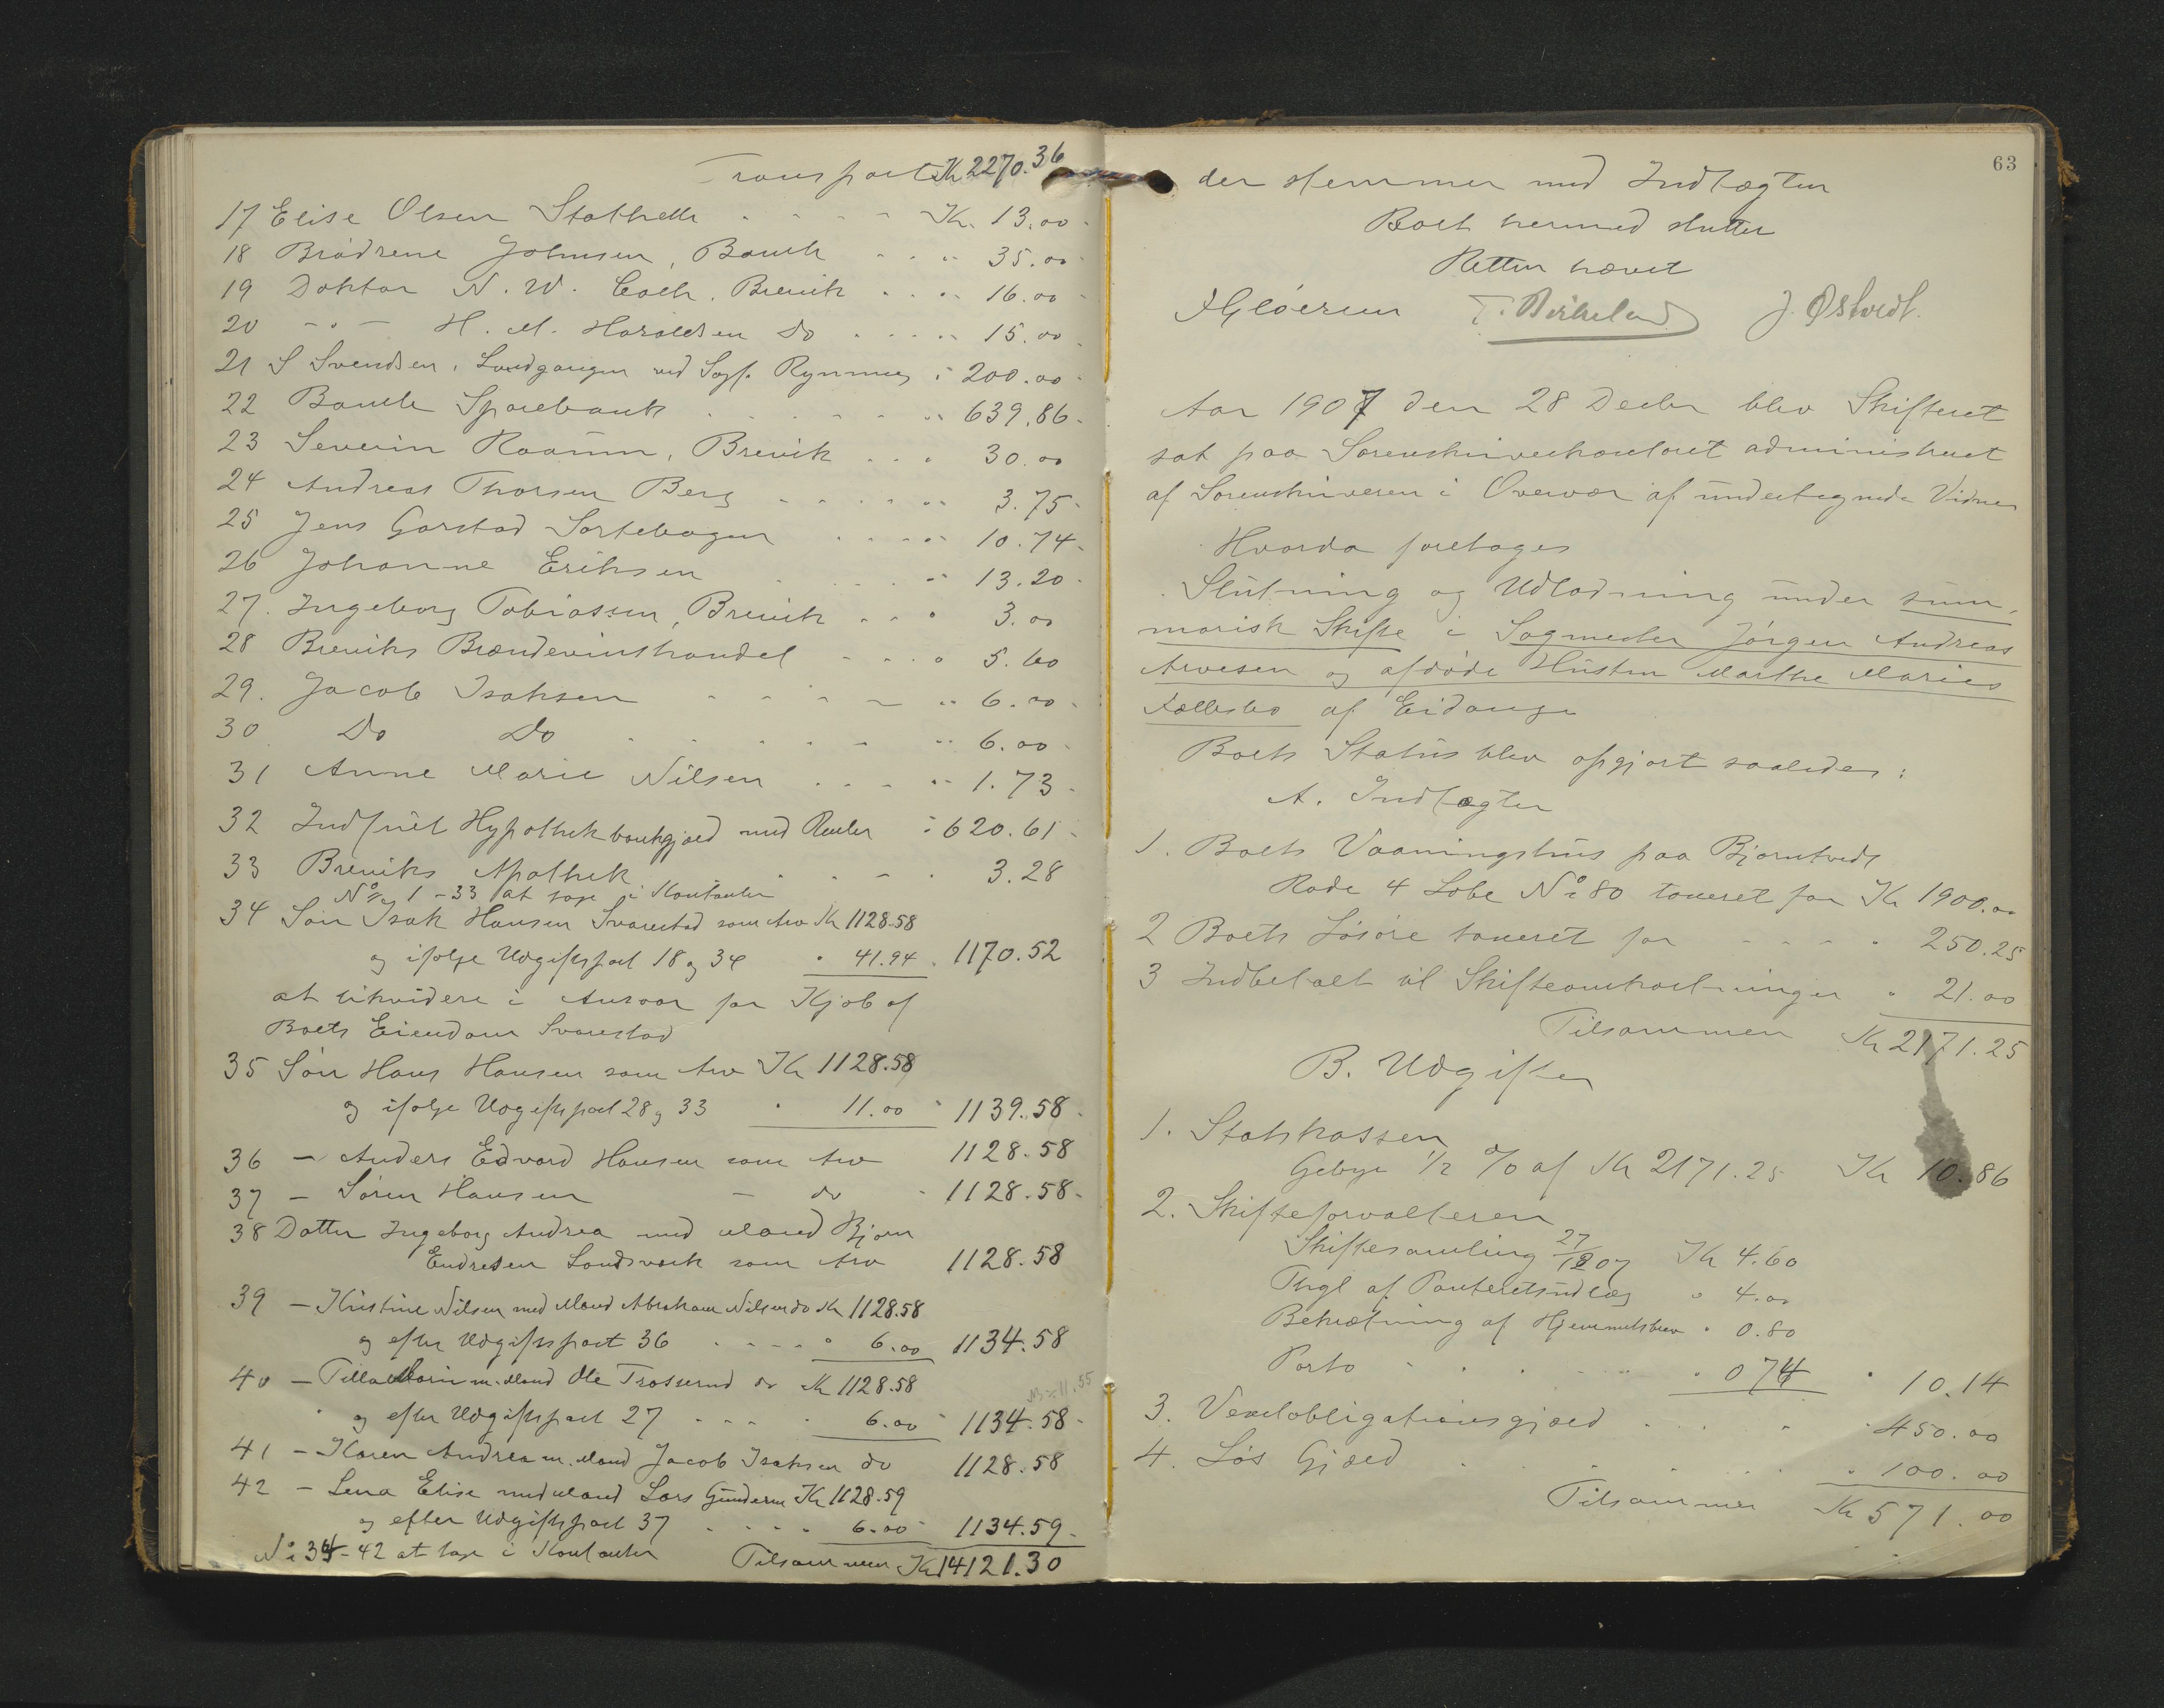 Transport Kr 2270.36
17 Elise Olsen Stathelle Kr. 13.00
18 Brødrene Johnsen, Bamle 35.00
19 Doktor N. W. Coch, Brevik 16.00
20 - " - H. M. Haraldsen Do 15.00
21 S Svendsen, Landgangen ved Sagf. Rynning 200.00
22 Bamle Sparebank 639.86
23 Severin Raamm, Brevik 30.00
24 Andreas Thorsen Berg 3.75
25 Jens Garstad Sortebogen 10.74
26 Johanne Eriksen 13.20
27. Ingeborg Tobiassen, Brevik 3.00
28 Breviks Brændevinshandel 5.60
29. Jacob Isaksen 6.00
30 Do Do 6.00
31 Anne Marie Nilsen 1.73
32 Indfriet Hypothekbankgjæld med Renter 620.61
33 Breviks Apothek 3.28
No 1-33 at tage i Kontanter
34 Søn Isak Hansen Svanstad som Arv Kr 1128.58
og ifølge Udgiftspost 18 og 34 " 41.94 1170.52
at likvidere i Ansvar for Kjøb af
Boets Eiendom Svanstad
35 Søn Hans Hansen som Arv Kr 1128.58
og ifølge Udgiftspost 28 og 33 " 11.00 1139.58
36 - Anders Edvard Hansen som Arv 1128.58
37 - Søren Hansen - do 1128.58
38 Datter Ingeborg Andrea med Mand Bjørn
Endresen Landsverk som Arv 1128.58
39 - Kristine Nilsen med Mand Abraham Nilsen do Kr 1128.58
og efter Udgiftspost 36 " 6.00 1134.58
40 - Tilla Marie m. Mand Ole Trosserud do Kr 1128.58
og efter Udgiftspost 27 6.00 1134.58
41 - Karen Andrea m. Mand Jacob Isaksen do 1128.58
42 - Lena Elise med Mand Lars Gundersen Kr 1128.59
og efter Udgiftspost 37 6.00 1134.59
No 34-42 at tage i Kontanter Tilsammen Kr 14121.30
63
der stemmer med Indtægten
Boet hermed sluttet
Retten hævet
F Gløersen T. Birkeland J. Østvedt.
Aar 1907 den 28 Decbr blev Skifteret
sat paa Sorenskriverkontoret administreret
af Sorenskriveren i Overvær af undertegnede Vidner
Hvorda foretages
Slutning og Udlodning under sum-
marisk Skifte i Sagmester Jørgen Andreas
Arvesen og afdøde Hustru Marthe Maries
Fællesbo af Eidanger
Boets Status blev opgjort saaledes:
A. Indtægter
1. Boets Vaaningshus paa Bjørntvedt
Rode 4 Løbe No 80 taxeret for Kr 1900.00
2 Boets Løsøre taxeret for 250.25
3 Indbetalt til Skifteomkostninger " 21.00
Tilsammen Kr 2171.25
B. Udgifter
1. Statskassen
Gebyr 1/2 % af Kr 2171.25 Kr 10.86
2. Skifteforvalteren
Skiftesamling 27/12 07 Kr 4.60
Thgl af Panteretsudlæg " 4.00
Bekræftning af Hjemmelsbrev " 0.80
Porto " 0 74 " 10.14
3. Vexelobligationsgjæld 450.00
4. Løs Gjæld " 100.00
Tilsammen Kr 571.00